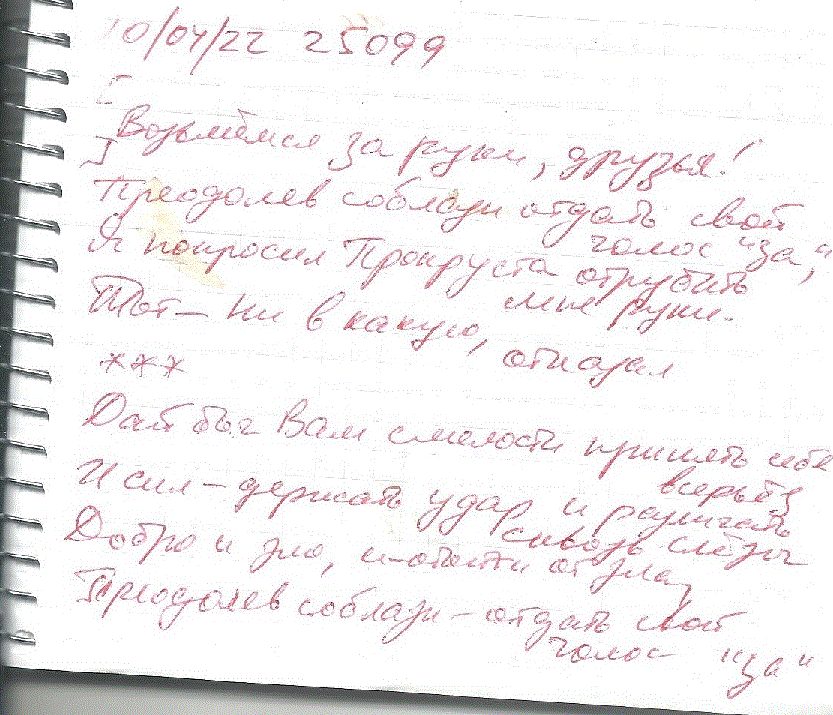 10/04/22 25099
Возьмёмся за руки, друзья!
Преодолев соблазн отдать свой
голос "за",
Я попросил Прокруста отрубить
мне руки.
Тот – ни в какую, отказал
***
Дай бог Вам смелости принять себя
всерьёз
И сил – держать удар и различать
сквозь слёзы
Добро и зло, и отойти от зла,
Преодолев соблазн – отдать свой
голос "за"